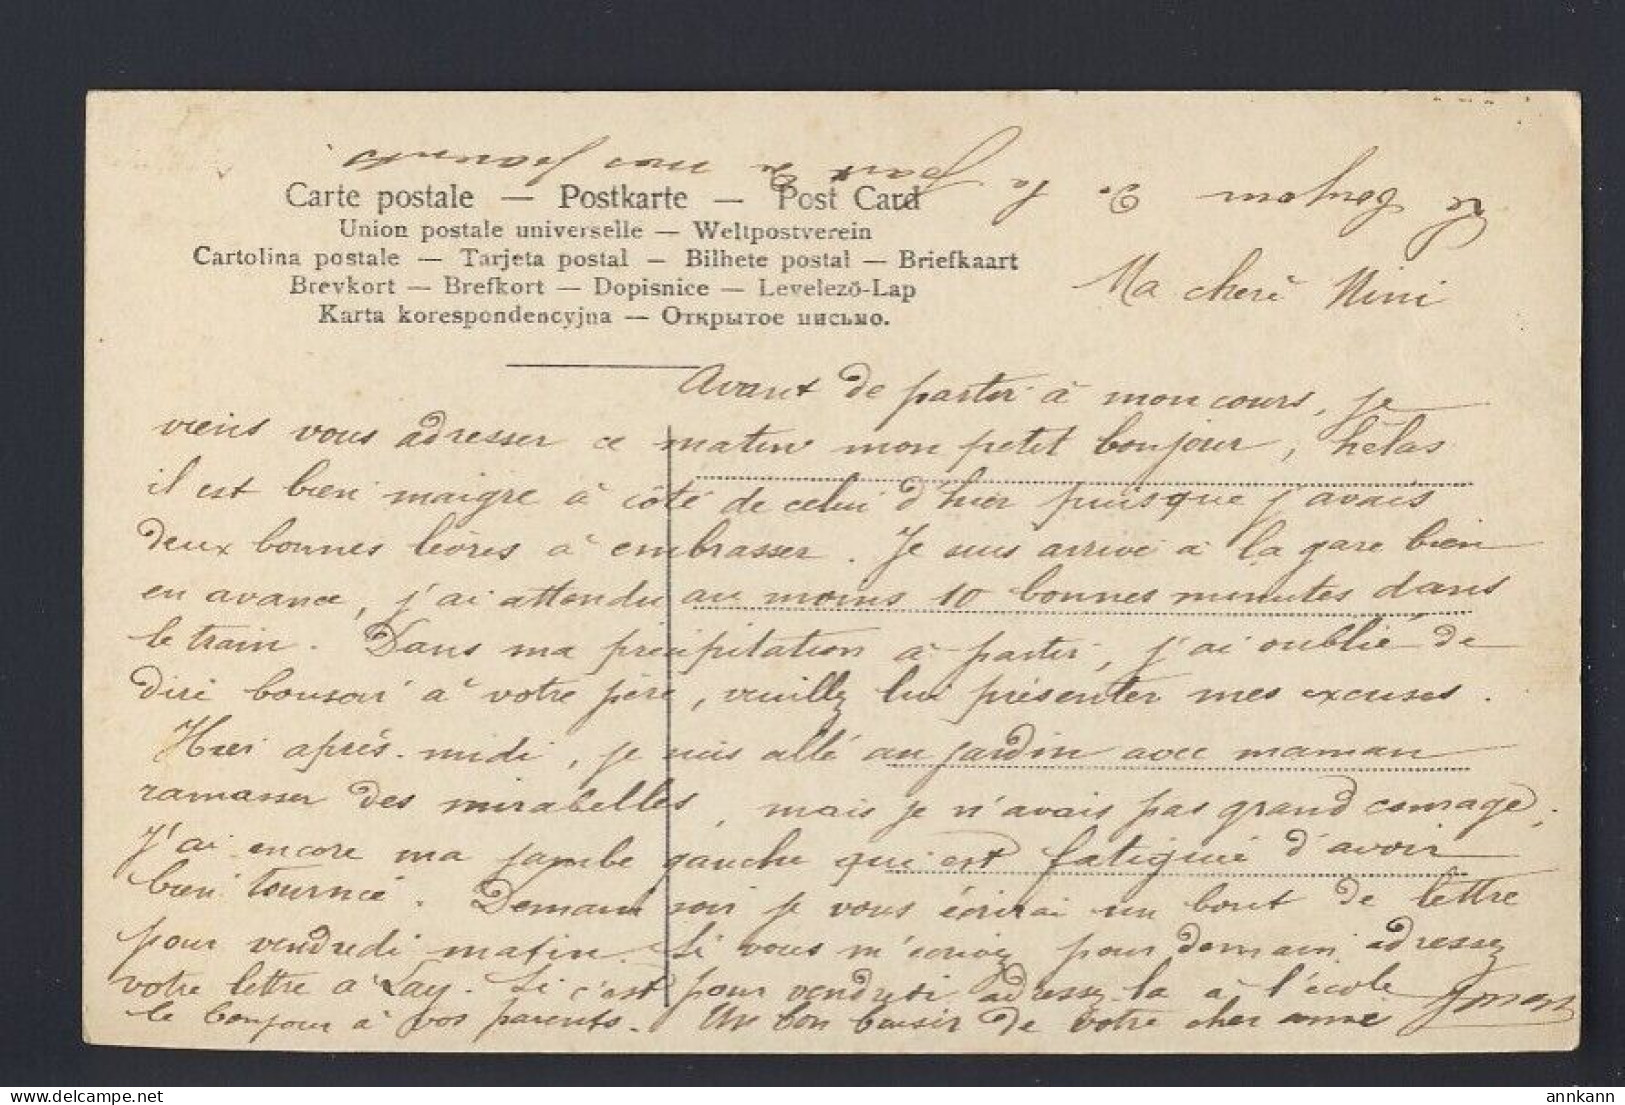 Le bonjour de la part de mes parents
Carte postale — Postkarte — Post Card
Union postale universelle — Weltpostverein
Cartolina postale — Tarjeta postal — Bilhete postal — Briefkaart
Brevkort — Brefkort — Dopisnice — Levelező-Lap
Karta korespondencyjna — Открытое письмо.
Ma cherè Nini
Avant de partir à mon cours, je
viens vous adresser ce matin mon petit bonjour, hélas
il est bien maigre à côté de celui d'hier puisque j'avais
deux bonnes lèvres à embrasser. Je suis arrivé à la gare bien
en avance, j'ai attendu au moins 10 bonnes minutes dans
le train. Dans ma précipitation à partir, j'ai oublié de
dire bonsoir à votre père, veuillez lui présenter mes excuses.
Hier après-midi, je suis allé au jardin avec maman
ramasser des mirabelles, mais je n'avais pas grand courage,
j'ai encore ma jambe gauche qui est fatiguée d'avoir
bien tourné. Demain soir je vous écrirai un bout de lettre
pour vendredi matin. Si vous m'écrivez pour demain adressez
votre lettre à Lay. Si c'est pour vendredi adressez-la à l'école
le bonjour à vos parents. Un bon baiser de votre cher ami